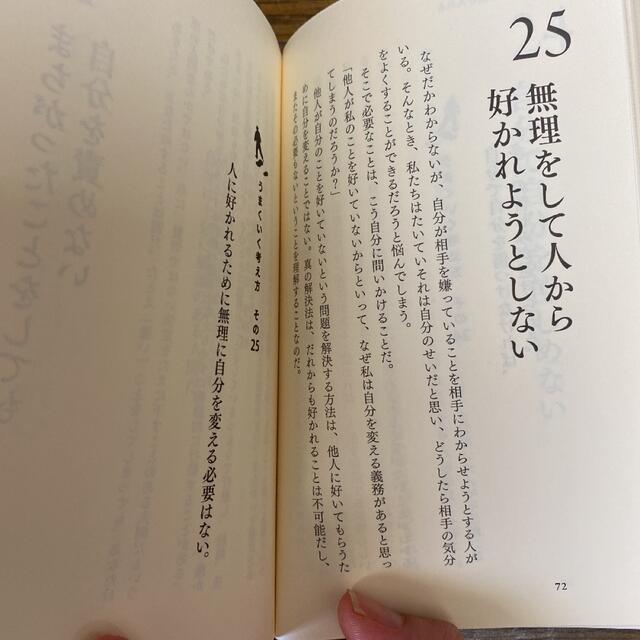 25
無理をして人から
好かれようとしない
なぜだかわからないが、自分が相手を嫌っていることを相手にわからせようとする人が
いる。そんなとき、私たちはたいていそれは自分のせいだと思い、どうしたら相手の気分
をよくすることができるだろうと悩んでしまう。
そこで必要なことは、こう自分に問いかけることだ。
「他人が私のことを好いていないからといって、なぜ私は自分を変える義務があると思っ
てしまうのだろうか？」
他人が自分のことを好いていないという問題を解決する方法は、他人に好いてもらうた
めに自分を変えることではない。真の解決法は、だれからも好かれることは不可能だし、
またその必要もないということを理解することなのだ。
72
うまくいく考え方 その25
人に好かれるために無理に自分を変える必要はない。